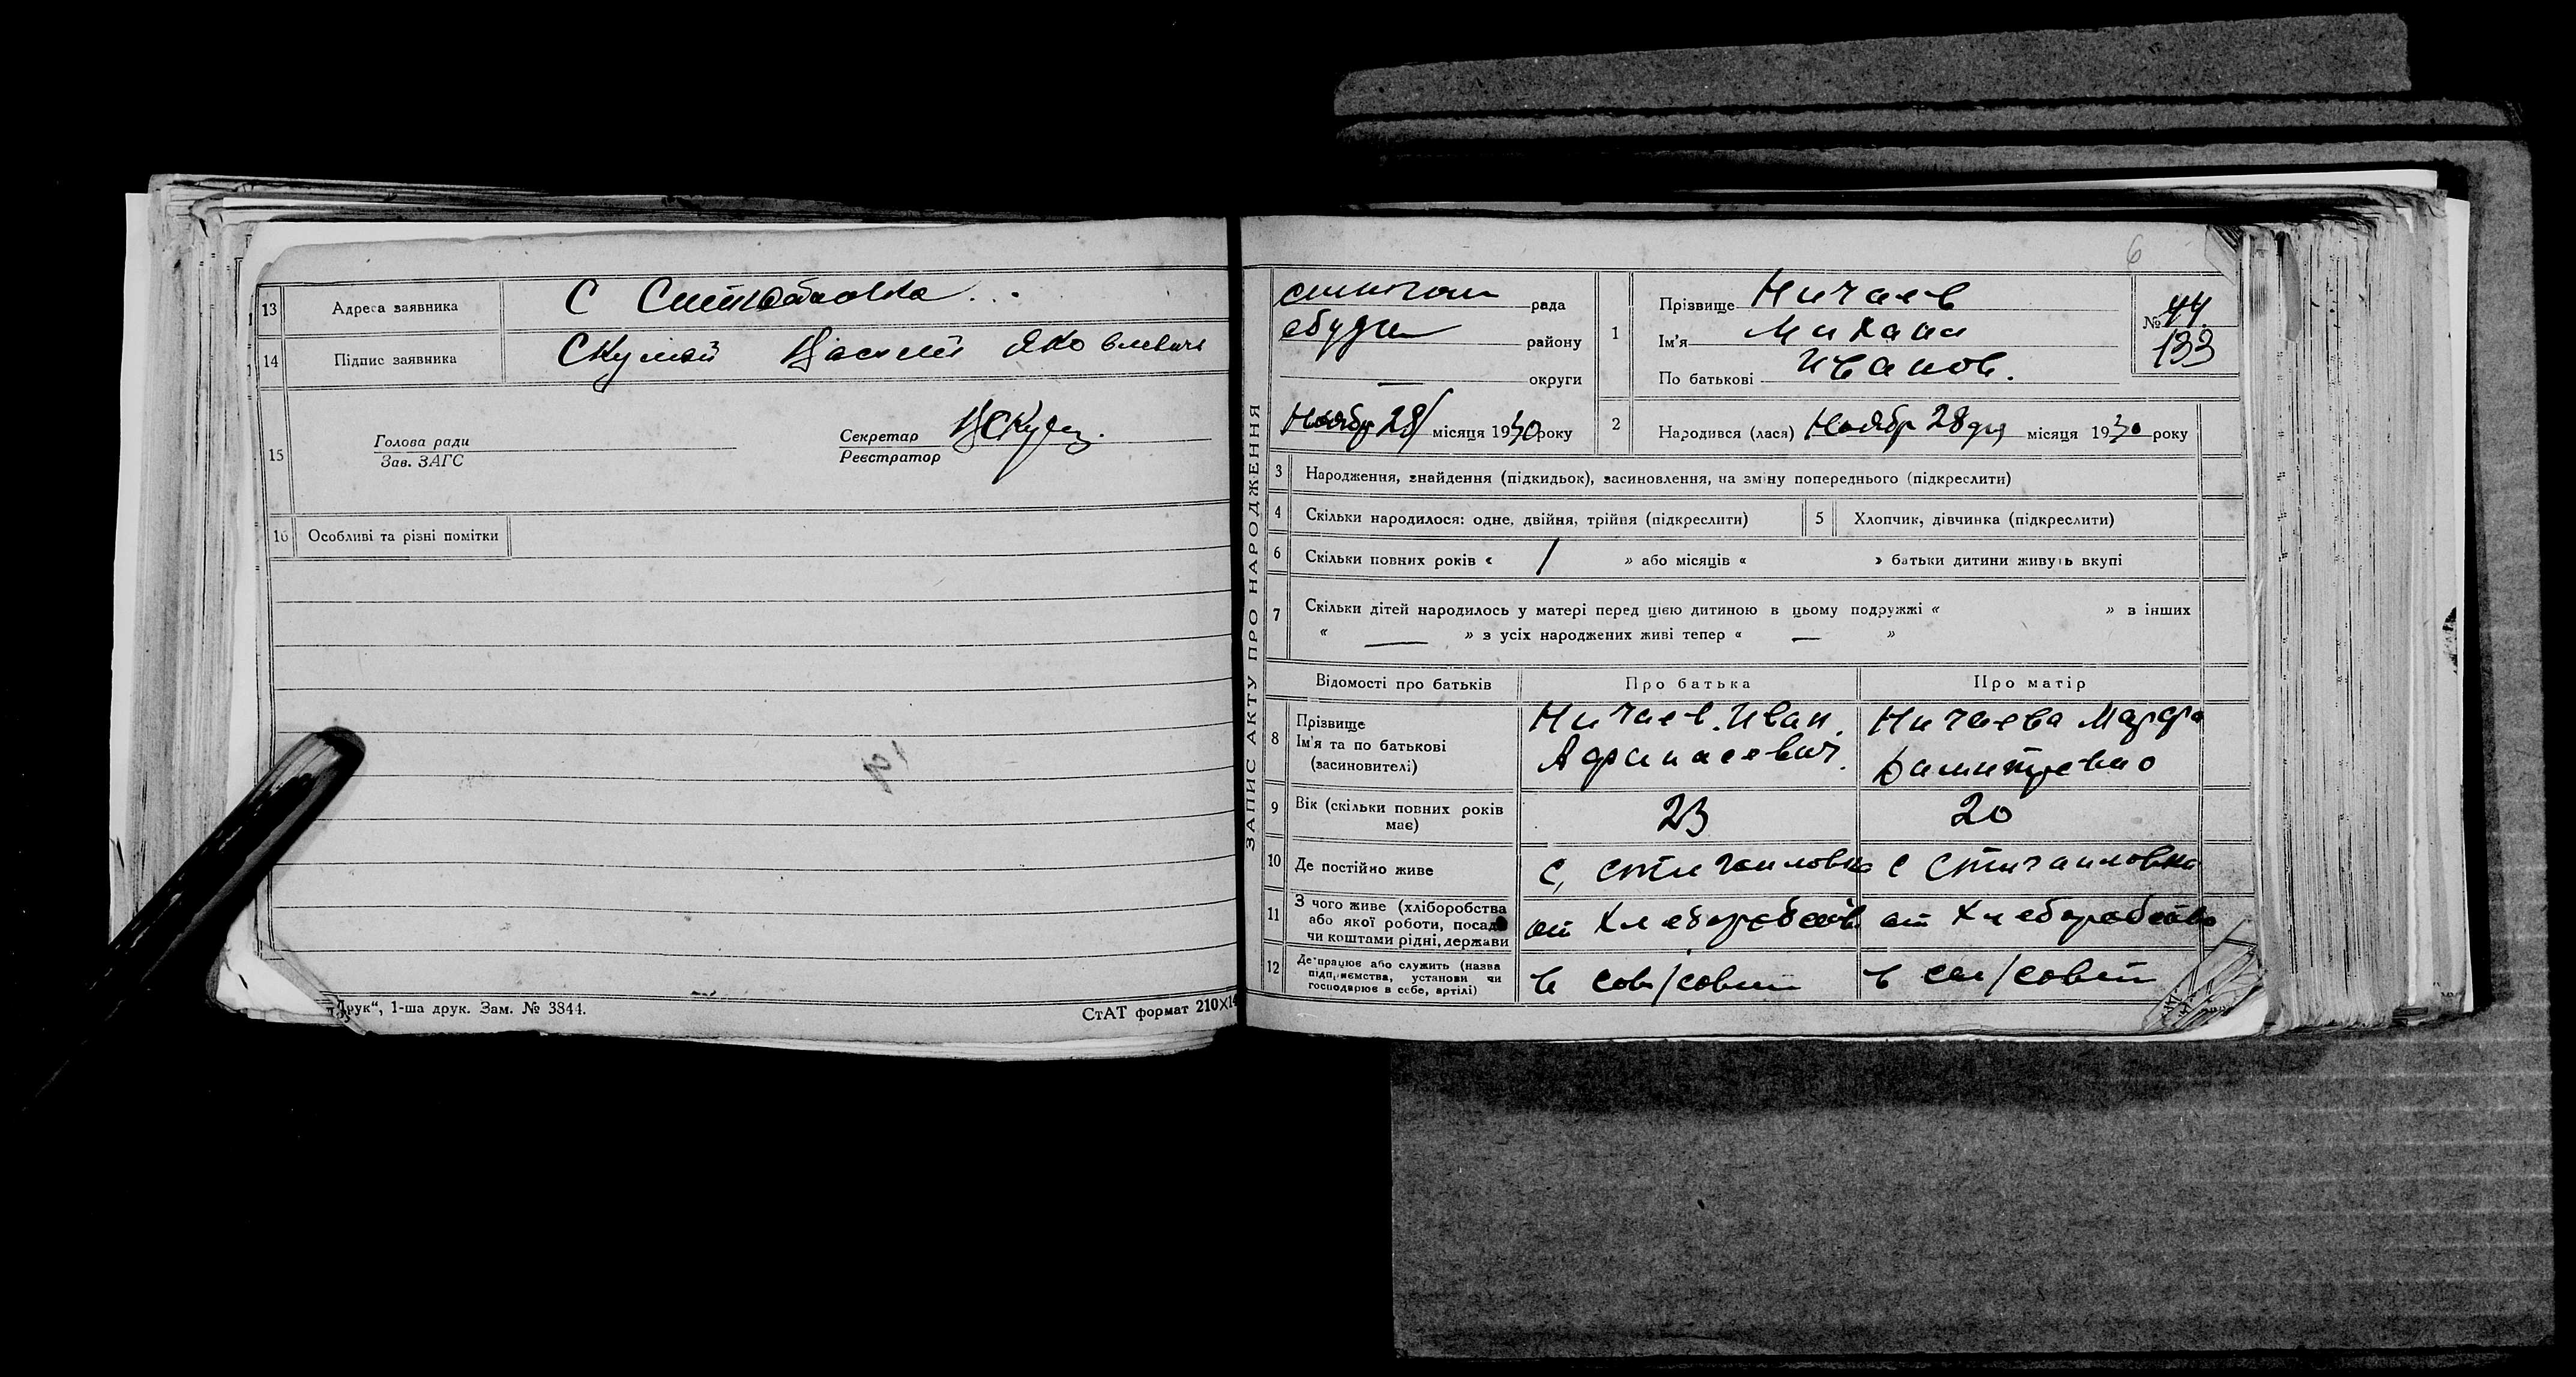 13 Адреса заявника С
14 Підпис заявника Скумай Яковлевич
15 Голова ради
Зав. ЗАГС
Секретар
Реєстратор
16 Особливі та різні помітки
Друк“, 1-ша друк. Зам. № 3844.
СтАТ формат 210X14
6
ЗАПИС АКТУ ПРО НАРОДЖЕННЯ
рада
району
— округи
Ноябр 28/ місяця 1930 року
1 Прізвище Ничаев
Ім'я Михаил
По батькові Иванов.
№ 44
133
2 Народився (лася) Ноябр 28 дня місяця 1930 року
3 Народження, знайдення (підкидьок), васиновлення, на зміну попереднього (підкреслити)
4 Скільки народилося: одне, двійня, трійня (підкреслити) 5 Хлопчик, дівчинка (підкреслити)
6 Скільки повних років « / » або місяців « » батьки дитини живуть вкупі
7 Скільки дітей народилось у матері перед цією дитиною в цьому подружжі « » в інших
« — » з усіх народжених живі тепер « — »
Відомості про батьків Про батька Про матір
8 Прізвище
Ім'я та по батькові
(засиновителі)
Ничаев Иван
Афанасевич
Ничаева Марфа
9 Вік (скільки повних років
має)
23 20
10 Де постійно живе с. с
11 З чого живе (хліборобства
або якої роботи, посади
чи коштами рідні, держави
от Хлеборобства от Хлеборобства
12 Де працює або служить (назва
підприємства, установи чи
господарює в себе, артілі)
в в